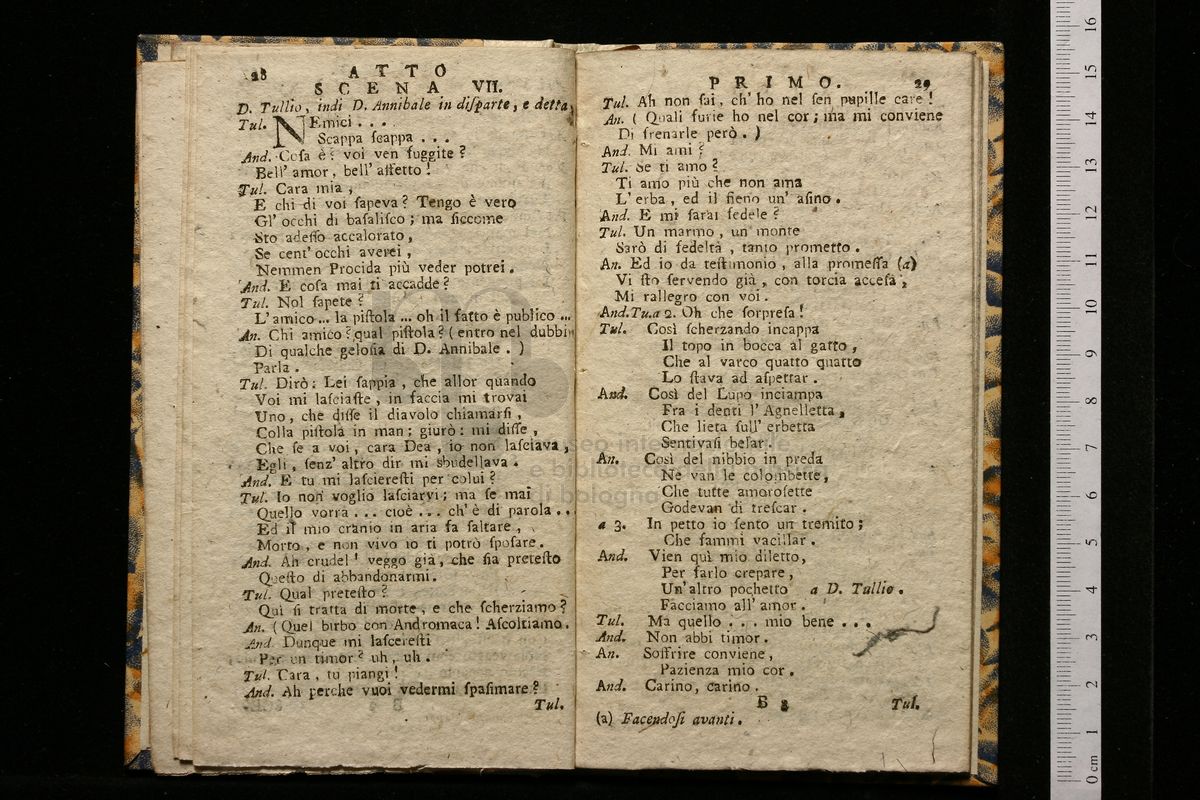 28 ATTO
SCENA VII.
D. Tullio, indi D. Annibale in diſparte, e detta,
Tul. NEmici . . .
Scappa ſcappa . . .
And. Coſa è? voi ven fuggite?
Bell' amor, bell' affetto!
Tul. Cara mia,
E chi di voi ſapeva? Tengo è vero
Gl' occhi di baſaliſco; ma ſiccome
Sto adeſſo accalorato,
Se cent' occhi averei,
Nemmen Procida più veder potrei.
And. E coſa mai ti accadde?
Tul. Nol ſapete?
L'amico ... la piſtola ... oh il fatto è publico ...
An. Chi amico? qual piſtola? (entro nel dubbi
Di qualche geloſia di D. Annibale.)
Parla.
Tul. Dirò: Lei ſappia, che allor quando
Voi mi laſciaſte, in faccia mi trovai
Uno, che diſſe il diavolo chiamarſi,
Colla piſtola in man; giurò: mi diſſe,
Che ſe a voi, cara Dea, io non laſciava,
Egli, ſenz' altro dir mi sbudellava.
And. E tu mi laſciereſti per colui?
Tul. Io non voglio laſciarvi; ma ſe mai
Quello vorrà ... cioè ... ch' è di parola ..
Ed il mio cranio in aria fa ſaltare,
Morto, e non vivo io ti potrò ſpoſare.
And. Ah crudel! veggo già, che ſia preteſto
Queſto di abbandonarmi.
Tul. Qual preteſto?
Quì ſi tratta di morte, e che ſcherziamo?
An. (Quel birbo con Andromaca! Aſcoltiamo.
And. Dunque mi laſcereſti
Per un timor? uh, uh.
Tul. Cara, tu piangi!
And. Ah perche vuoi vedermi ſpaſimare?
Tul.
PRIMO. 29
Tul. Ah non ſai, ch' ho nel ſen pupille care!
An. (Quali furie ho nel cor; ma mi conviene
Di frenarle però.)
And. Mi ami?
Tul. Se ti amo?
Ti amo più che non ama
L'erba, ed il fieno un' aſino.
And. E mi ſarai fedele?
Tul. Un marmo, un monte
Sarò di fedeltà, tanto prometto.
An. Ed io da teſtimonio, alla promeſſa (a)
Vi ſto ſervendo già, con torcia acceſa,
Mi rallegro con voi.
And. Tu. a 2. Oh che ſorpreſa!
Tul. Così ſcherzando incappa
Il topo in bocca al gatto,
Che al varco quatto quatto
Lo ſtava ad aſpettar.
And. Così del Lupo inciampa
Fra i denti l'Agnelletta,
Che lieta ſull' erbetta
Sentivaſi belar.
An. Così del nibbio in preda
Ne van le colombette,
Che tutte amoroſette
Godevan di treſcar.
a 3. In petto io ſento un tremito;
Che fammi vacillar.
And. Vien quì mio diletto,
Per farlo crepare,
Un'altro pochetto a D. Tullio.
Facciamo all' amor.
Tul. Ma quello ... mio bene ...
And. Non abbi timor.
An. Soffrire conviene,
Pazienza mio cor.
And. Carino, carino.
B 3 Tul.
(a) Facendoſi avanti.
museo internazionale
e biblioteca della musica
di bologna
0 cm 1 2 3 4 5 6 7 8 9 10 11 12 13 14 15 16